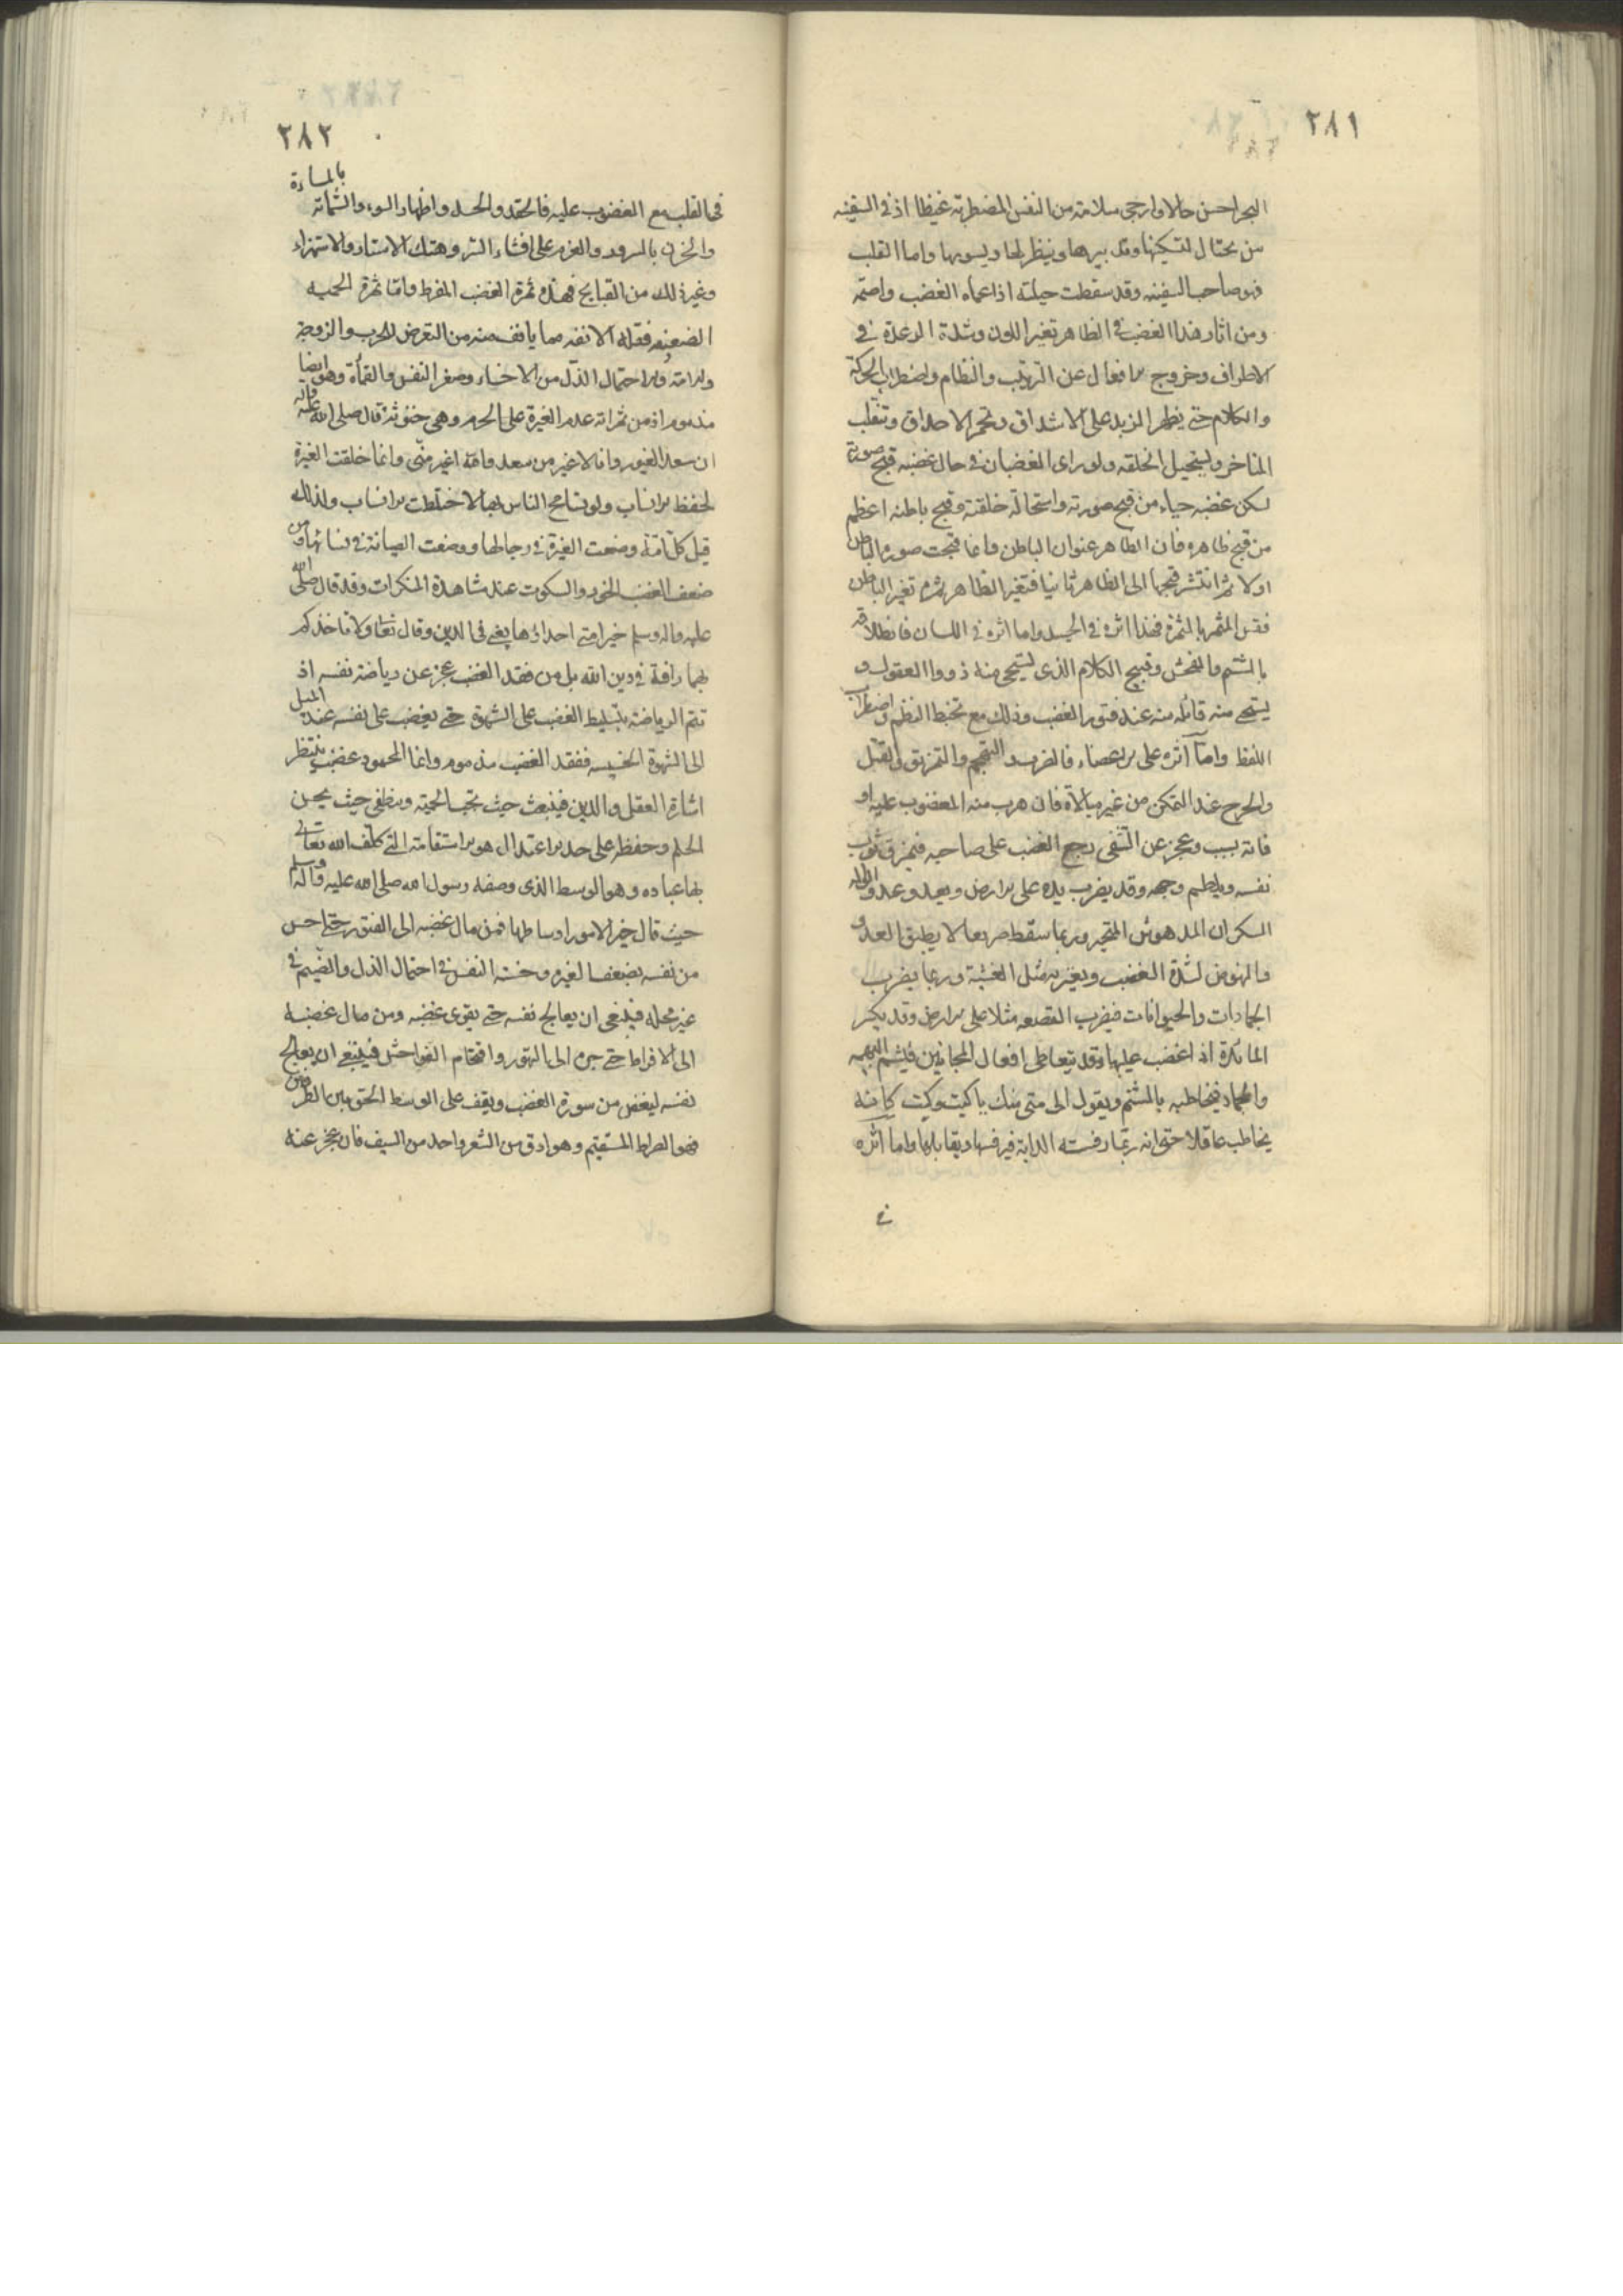 ٢٨١
البحر احسن حالا وارجى سلامة من النفس المضطربة غيظا اذ فى السفينه
من يحتال لتسكينها وتدبيرها وينظر لها ويسويها واما القلب
فهو صاحب السفينه وقد سقطت حيلته اذا عماه الغضب واصمه
ومن اثار هذا الغضب فى الظاهر تغير اللون وشدة الرعدة فى
الاطراف وخروج الافعال عن الترتيب والنظام واضطراب الحركة
والكلام حتى يظهر الزبد على الاشداق وتحمر الاحداق وتنقلب
المناخر ويستحيل الخلقه ولو راى الغضبان فى حال غضبه قبح صورته
لسكن غضبه حياء من قبح صورته واستحالة خلقته وقبح باطنه اعظم
من قبح ظاهره فان الظاهر عنوان الباطن وانما قبحت صورة الباطن
اولا ثم انتشر قبحها الى الظاهر ثانيا فتغير الظاهر ثمرة تغير الباطن
فقس المثمر بالثمرة فهذا اثره فى الجسد واما اثره فى اللسان فانطلاقه
بالشتم والفحش وقبيح الكلام الذى يستحى منه ذووا العقول و
يستحى منه قائله عند فتور الغضب وذلك مع تخبط النظم واضطراب
اللفظ واما اثره على الاعضاء فالضرب والتهجم والتمزيق والقتل
والجرح عند التمكن من غير مبالاة فان هرب منه المغضوب عليه او
فاته بسبب وعجز عن التشفى رجع الغضب على صاحبه فيمزق ثوب
نفسه ويلطم وجهه وقد يضرب يده على الارض ويعدو عدو الواله
السكران المدهوش المتحير وربما سقط صريعا لا يطيق العدو
والنهوض لشدة الغضب ويعتريه مثل الغشية وربما يضرب
الجمادات والحيوانات فيضرب القصعه مثلا على الارض وقد يكسر
المائدة اذا غضب عليها وقد يتعاطى افعال المجانين فيشتم البهيمه
والجماد فيخاطبه بالشتم ويقول الى متى منك يا كيت وكيت كانه
يخاطب عاقلا حتى انه ربما رفسته الدابة فيرفسها ويقابلها واما اثره
فى
٢٨٢
فى القلب مع المغضوب عليه فالحقد والحسد واظهار السوء والشماته بالمساءة
والحزن بالسرور والعزم على افشاء السر وهتك الاستار والاستهزاء
وغير ذلك من القبايح فهذه ثمرة الغضب المفرط واما ثمرة الحميه
الضعيفه فقلة الانفه مما يانف منه من التعرض للحرم والزوجة
والامة واحتمال الذل من الاخساء وصغر النفس والقماءة وهو ايضا
مذموم اذ من ثمراته عدم الغيرة على الحرم وهى خنوثة قال صلى الله عليه واله
ان سعدا لغيور وانا لاغير من سعد والله اغير منى وانما خلقت الغيرة
لحفظ الانساب ولو تسامح الناس بها لاختلطت الانساب ولذلك
قيل كل امة وضعت الغيرة فى رجالها ووضعت الصيانة فى نسائها ومن
ضعف الغضب الخور والسكوت عند مشاهدة المنكرات وقد قال صلى الله
عليه واله وسلم خير امتى احداؤها يعنى فى الدين وقال تعالى ولا تاخذكم
بهما رافة فى دين الله بل من فقد الغضب عجز عن رياضة نفسه اذ
تتم الرياضة بتسليط الغضب على الشهوة حتى يغضب على نفسه عند الميل
الى الشهوة الخسيسه ففقد الغضب مذموم وانما المحمود غضب ينتظر
اشارة العقل والدين فينبعث حيث تجب الحمية وينطفى حيث يحسن
الحلم وحفظه على حد الاعتدال هو الاستقامة التى كلف الله تعالى
بها عباده وهو الوسط الذى وصفه رسول الله صلى الله عليه واله وسلم
حيث قال خير الامور اوساطها فمن مال غضبه الى الفتور حتى احس
من نفسه بضعف الغيره وخسة النفس فى احتمال الذل والضيم فى
غير محله فينبغى ان يعالج نفسه حتى يقوى غضبه ومن مال غضبه
الى الافراط حتى جره الى التهور واقتحام الفواحش فينبغى ان يعالج
نفسه ليغض من سورة الغضب ويقف على الوسط الحق بين الطرفين
فهو الصراط المستقيم وهو ادق من الشعر واحد من السيف فان عجز عنه